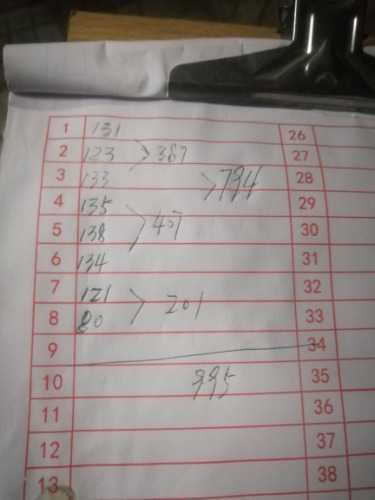 1 131 26
2 123 >387 27
3 133 >794 28
4 135 29
5 138 >407 30
6 134 31
7 121 32
8 80 >201 33
9 34
10 995 35
11 36
12 37
13 38